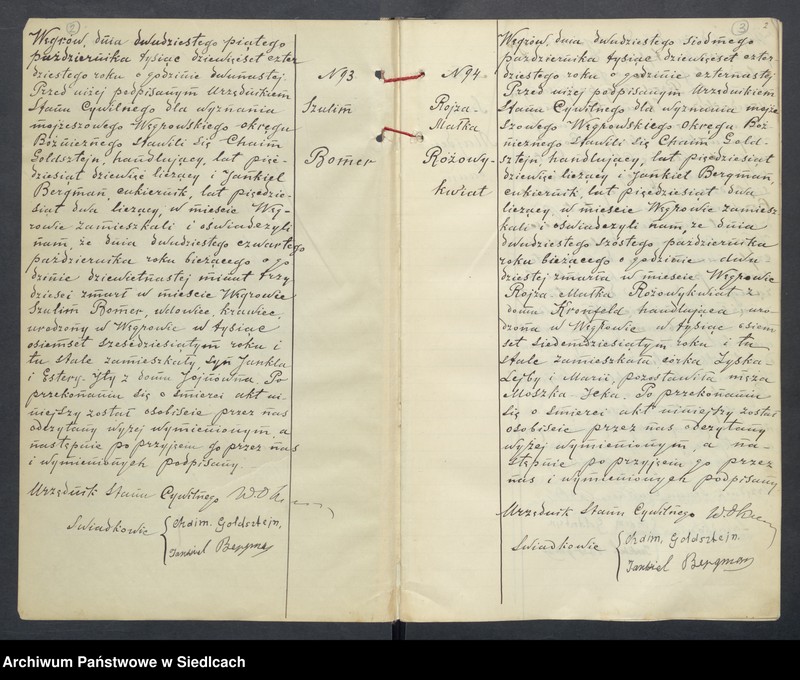 2
Węgrów, dnia dwudziestego piątego
października tysiąc dziewięćset czter
dziestego roku o godzinie dwunastej
Przed niżej podpisanym Urzędnikiem
Stanu Cywilnego dla wyznania
mojżeszowego Węgrowskiego okręgu
Bóżnicznego stawili się Chaim
Goldsztejn, handlujący, lat pięć-
dziesiąt dziewięć liczący i Jankiel
Bergman, cukiernik, lat pięćdzie-
siąt dwa liczący, w mieście Węg-
rowie zamieszkali i oświadczyli
nam, że dnia dwudziestego czwartego
października roku bieżącego o go
dzinie dziewiętnastej minut trzy
dzieści zmarł w mieście Węgrowie
Szulim Bomer, wdowiec, krawiec,
urodzony w Węgrowie w tysiąc
osiemset sześćdziesiątym roku i
tu stale zamieszkały syn Jankla
i Estery-Jty z domu Jójnówna. Po
przekonaniu się o śmierci akt ni
niejszy został osobiście przez nas
odczytany wyżej wymienionym a
następnie po przyjęciu go przez nas
i wymienionych podpisany.
Urzędnik Stanu Cywilnego
Świadkowie
Chaim, Goldsztejn,
Jankiel Bergman
N93
Szulim
Bomer
N94
Rojza-
Małka
Różowy-
kwiat
3
2
Węgrów, dnia dwudziestego siódmego
października tysiąc dziewięćset czter
dziestego roku o godzinie czternastej
Przed niżej podpisanym Urzędnikiem
Stanu Cywilnego dla wyznania mojże
szowego Węgrowskiego okręgu Bóż
nicznego stawili się Chaim Gold-
sztejn, handlujący, lat pięćdziesiąt
dziewięć liczący i Jankiel Bergman,
cukiernik, lat pięćdziesiąt dwa
liczący, w mieście Węgrowie zamiesz
kali i oświadczyli nam, że dnia
dwudziestego szóstego października
roku bieżącego o godzinie dwu
dziestej zmarła w mieście Węgrowie
Rojza-Małka Różowykwiat z
domu Kronfeld handlująca uro-
dzona w Węgrowie w tysiąc osiem
set siedemdziesiątym roku i tu
stale zamieszkała córka Zyska-
Lejby i Marii, pozostawiła męża
Moszka Jcka. Po przekonaniu
się o śmierci akt niniejszy został
osobiście przez nas odczytany
wyżej wymienionym, a na-
stępnie po przyjęciu go przez
nas i wymienionych podpisany
Urzędnik Stanu Cywilnego
Świadkowie
Chaim, Goldsztejn.
Jankiel Bergman
Archiwum Państwowe w Siedlcach